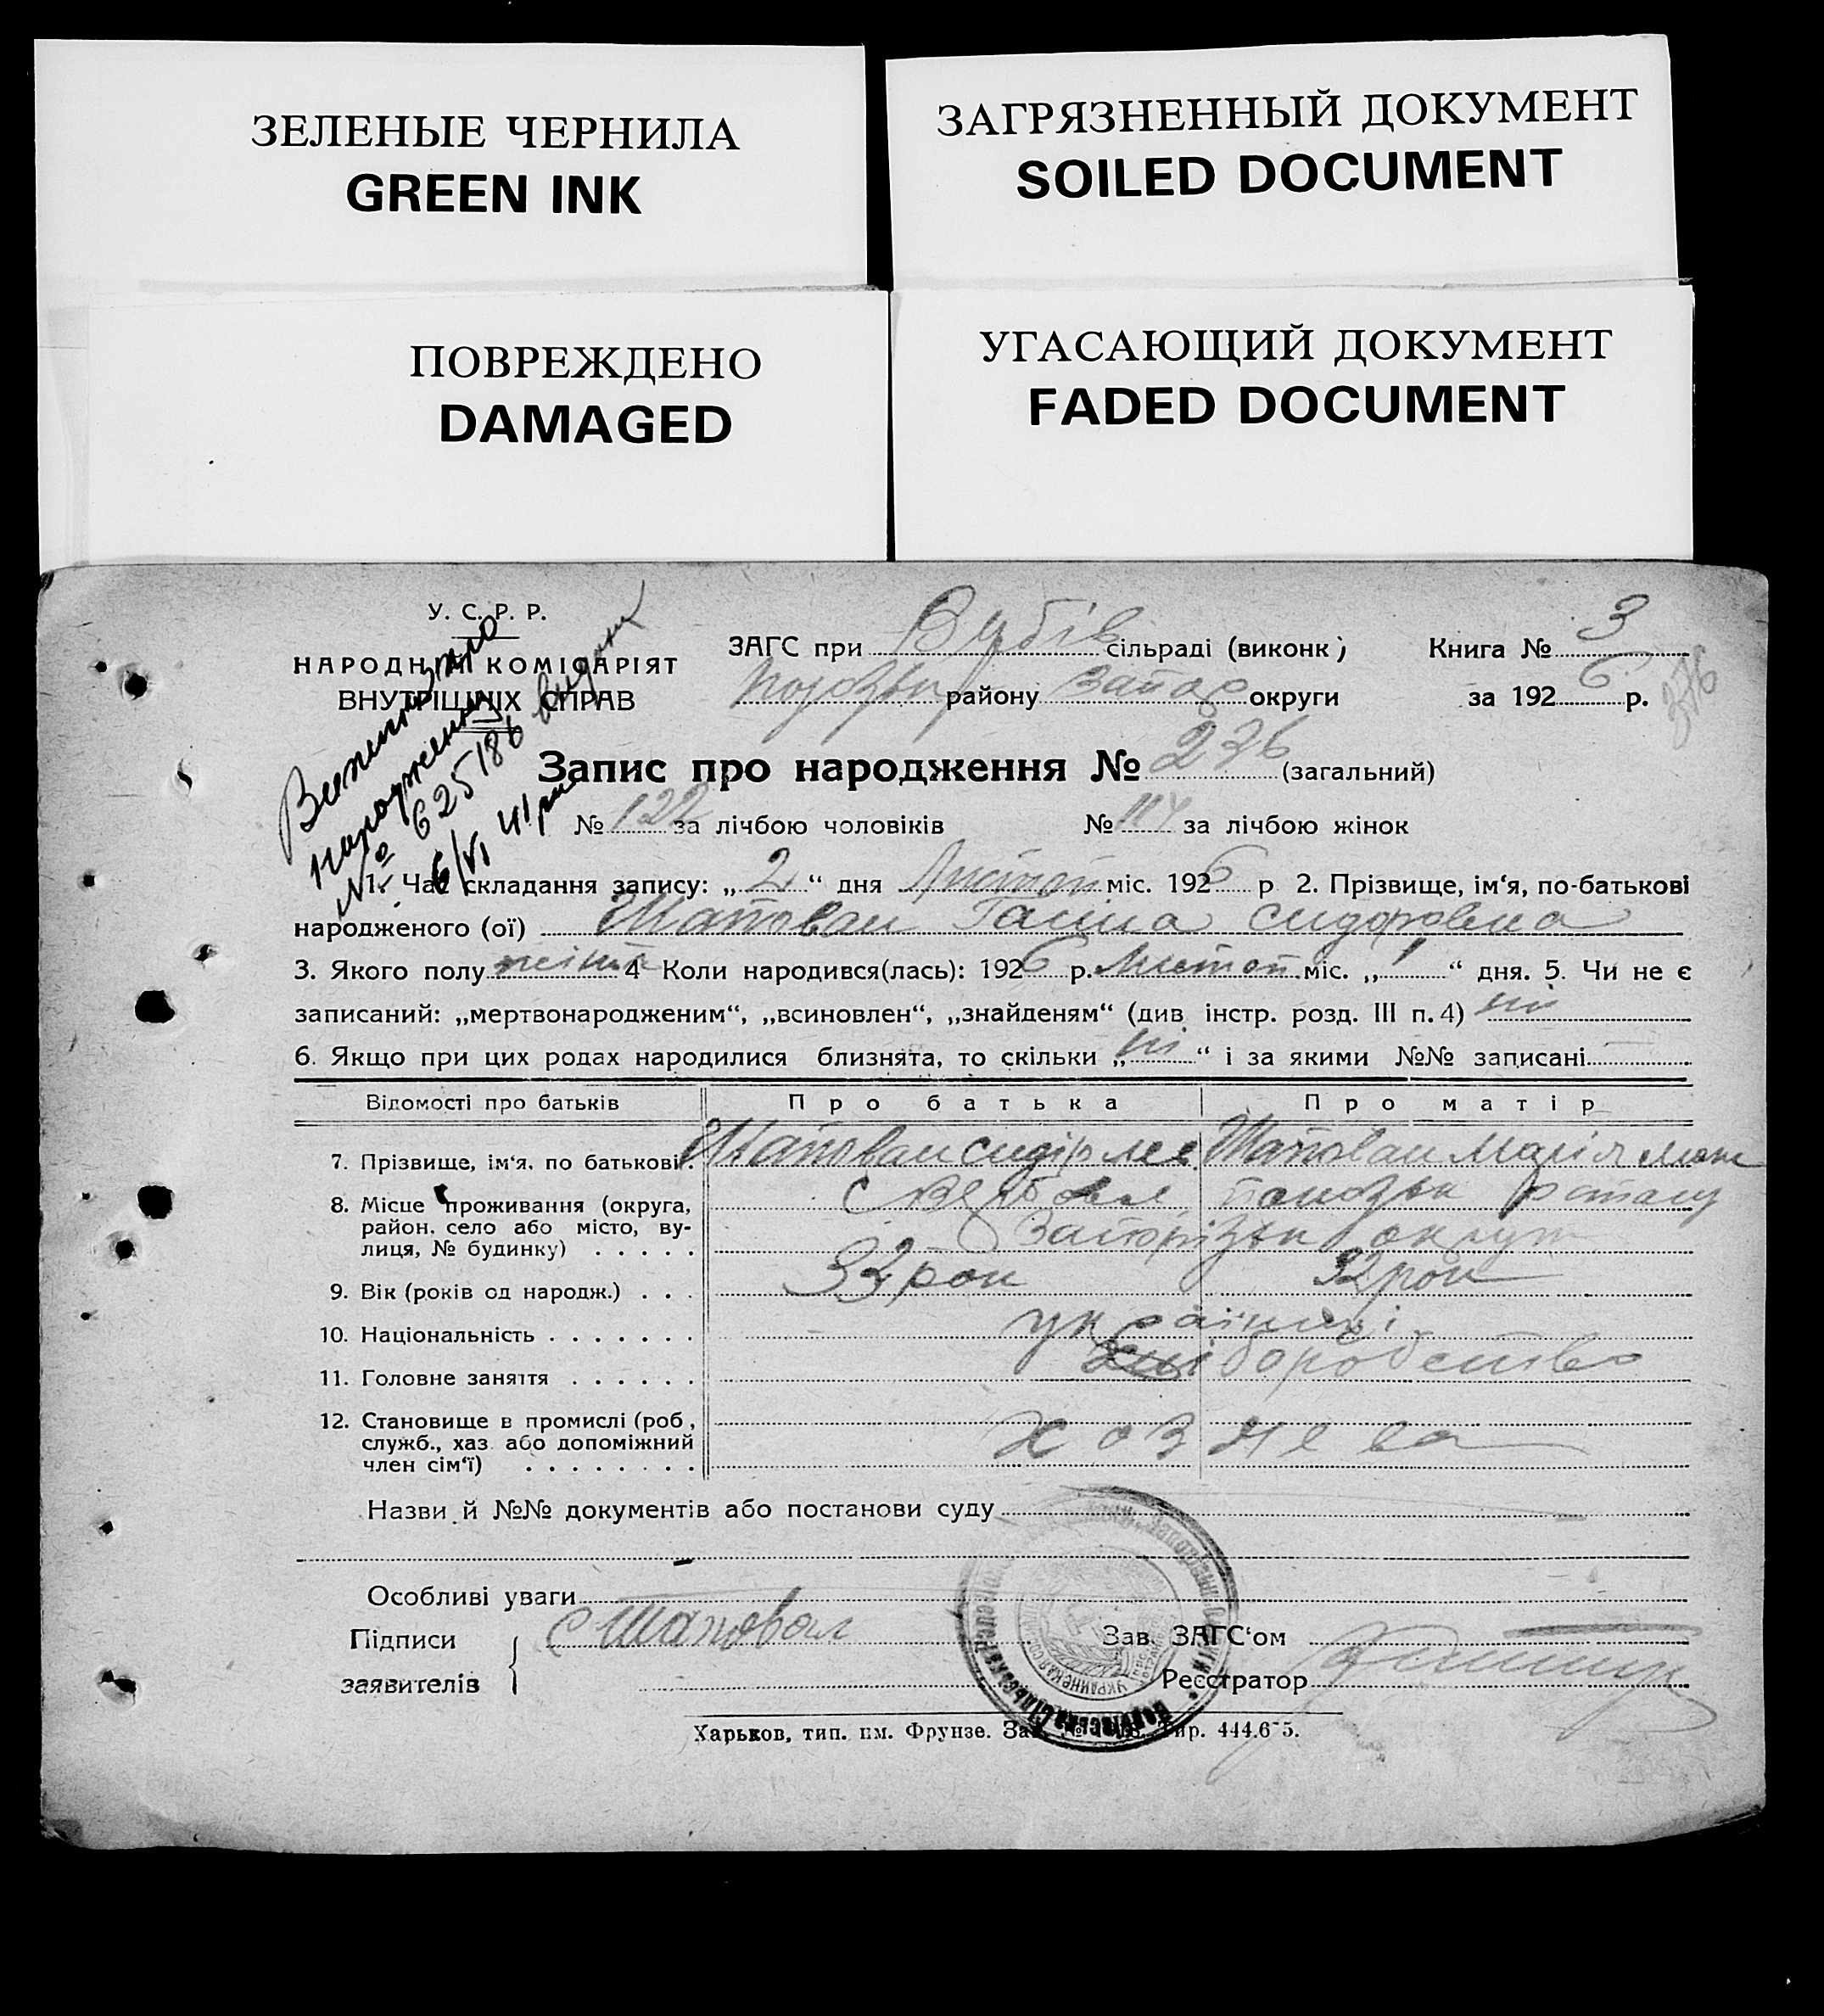 ЗЕЛЕНЫЕ ЧЕРНИЛА
GREEN INK
ЗАГРЯЗНЕННЫЙ ДОКУМЕНТ
SOILED DOCUMENT
ПОВРЕЖДЕНО
DAMAGED
УГАСАЮЩИЙ ДОКУМЕНТ
FADED DOCUMENT
У. С. Р. Р.
НАРОДНІЙ КОМІСАРІЯТ
ВНУТРІШНІХ СПРАВ
№ 625186 видана
ЗАГС при Вербів сільраді (виконк)
району Запор округи
Книга № 3
за 1926 р.
376
Запис про народження № 236 (загальний)
№ 122 за лічбою чоловіків № 114 за лічбою жінок
1. Час складання запису: „ 2 “ дня Листоп міс. 1926 р 2. Прізвище, ім‘я, по-батькові
народженого (ої) Шаповал Ганна Сидоровна
3. Якого полу жіноч 4 Коли народився(лась): 1926 р. Листоп міс. „ 1 “ дня. 5. Чи не є
записаний: „мертвонародженим“, „всиновлен“, „знайденям“ (див. інстр. розд. III п. 4) ні
6. Якщо при цих родах народилися близнята, то скільки „ ні “ і за якими №№ записані
Відомості про батьків Про батька Про матір
7. Прізвище, ім‘я, по батькові. Шаповал Сидір Шаповал Марія
8. Місце проживання (округа, район, село або місто, вулиця, № будинку) с Вербове
Запорізьк округи
9. Вік (років од народж.) 32 рок 32 рок
10. Національність українці
11. Головне заняття хліборобство
12. Становище в промислі (роб., служб., хаз. або допоміжний член сім‘ї) хозяева
Назви й №№ документів або постанови суду
Особливі уваги
Підписи заявителів С Шаповал
Зав. ЗАГС‘ом
Реєстратор
Харьков, тип. им. Фрунзе.